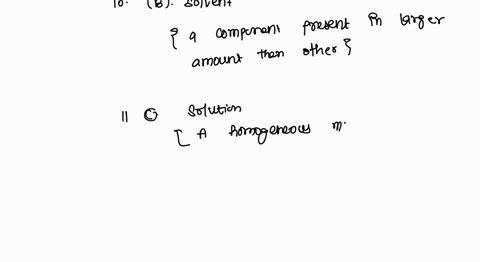 10. (B). Solvent
{ a component present in larger
amount than other }
11 C Solution
[ A homogeneous m.